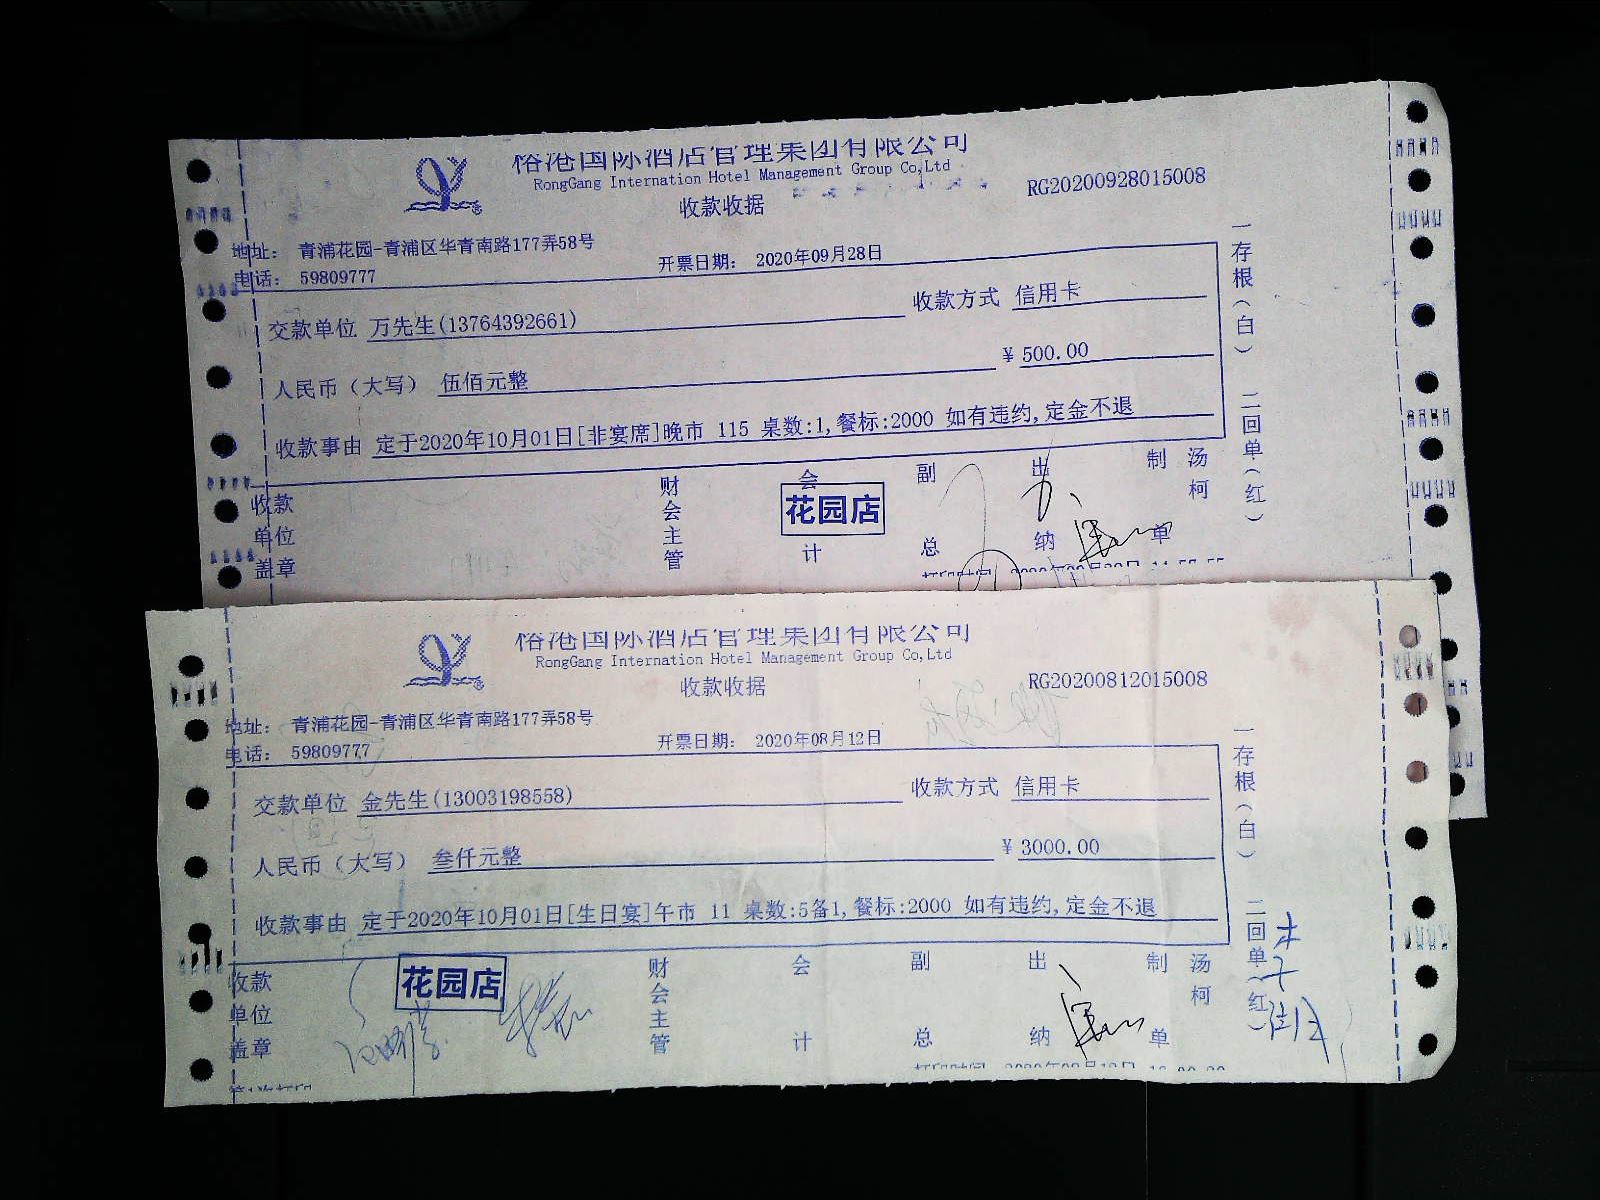 榕港国际酒店管理集团有限公司
RongGang Internation Hotel Management Group Co,Ltd
收款收据
RG20200928015008
地址： 青浦花园-青浦区华青南路177弄58号
电话： 59809777
开票日期： 2020年09月28日
交款单位 万先生(13764392661)
收款方式 信用卡
人民币（大写） 伍佰元整
¥ 500.00
收款事由 定于2020年10月01日[非宴席]晚市 115 桌数:1,餐标:2000 如有违约,定金不退
一存根（白） 二回单（红）
收款单位盖章
财会主管
会计
花园店
副总
出纳
制单
汤柯
榕港国际酒店管理集团有限公司
RongGang Internation Hotel Management Group Co,Ltd
收款收据
RG20200812015008
地址： 青浦花园-青浦区华青南路177弄58号
电话： 59809777
开票日期： 2020年08月12日
交款单位 金先生(13003198558)
收款方式 信用卡
人民币（大写） 叁仟元整
¥ 3000.00
收款事由 定于2020年10月01日[生日宴]午市 11 桌数:5备1,餐标:2000 如有违约,定金不退
一存根（白） 二回单（红）
收款单位盖章
花园店
财会主管
会计
副总
出纳
制单
汤柯